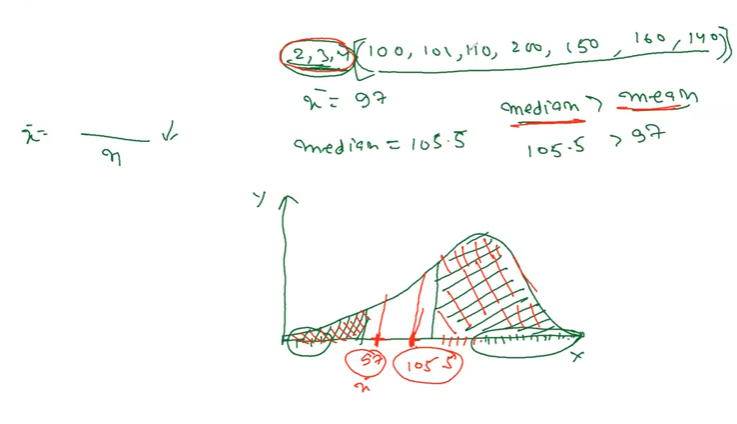 2, 3, 4 (100, 101, 110, 200, 150, 160, 140)
x̄ = 97
median > mean
x̄ =
n
median = 105.5
105.5 > 97
y
97
105.5
x
x